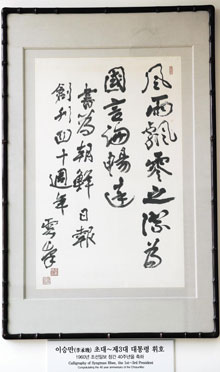 風雨飄零之際爲
國言論暢達
書爲朝鮮日報
創刊四十週年
이승만(李承晩) 초대~제3대 대통령 휘호
1960년 조선일보 창간 40주년을 축하
Calligraphy of Syngman Rhee, the 1st~3rd President
Congratulating the 40 year anniversary of the Chosunilbo